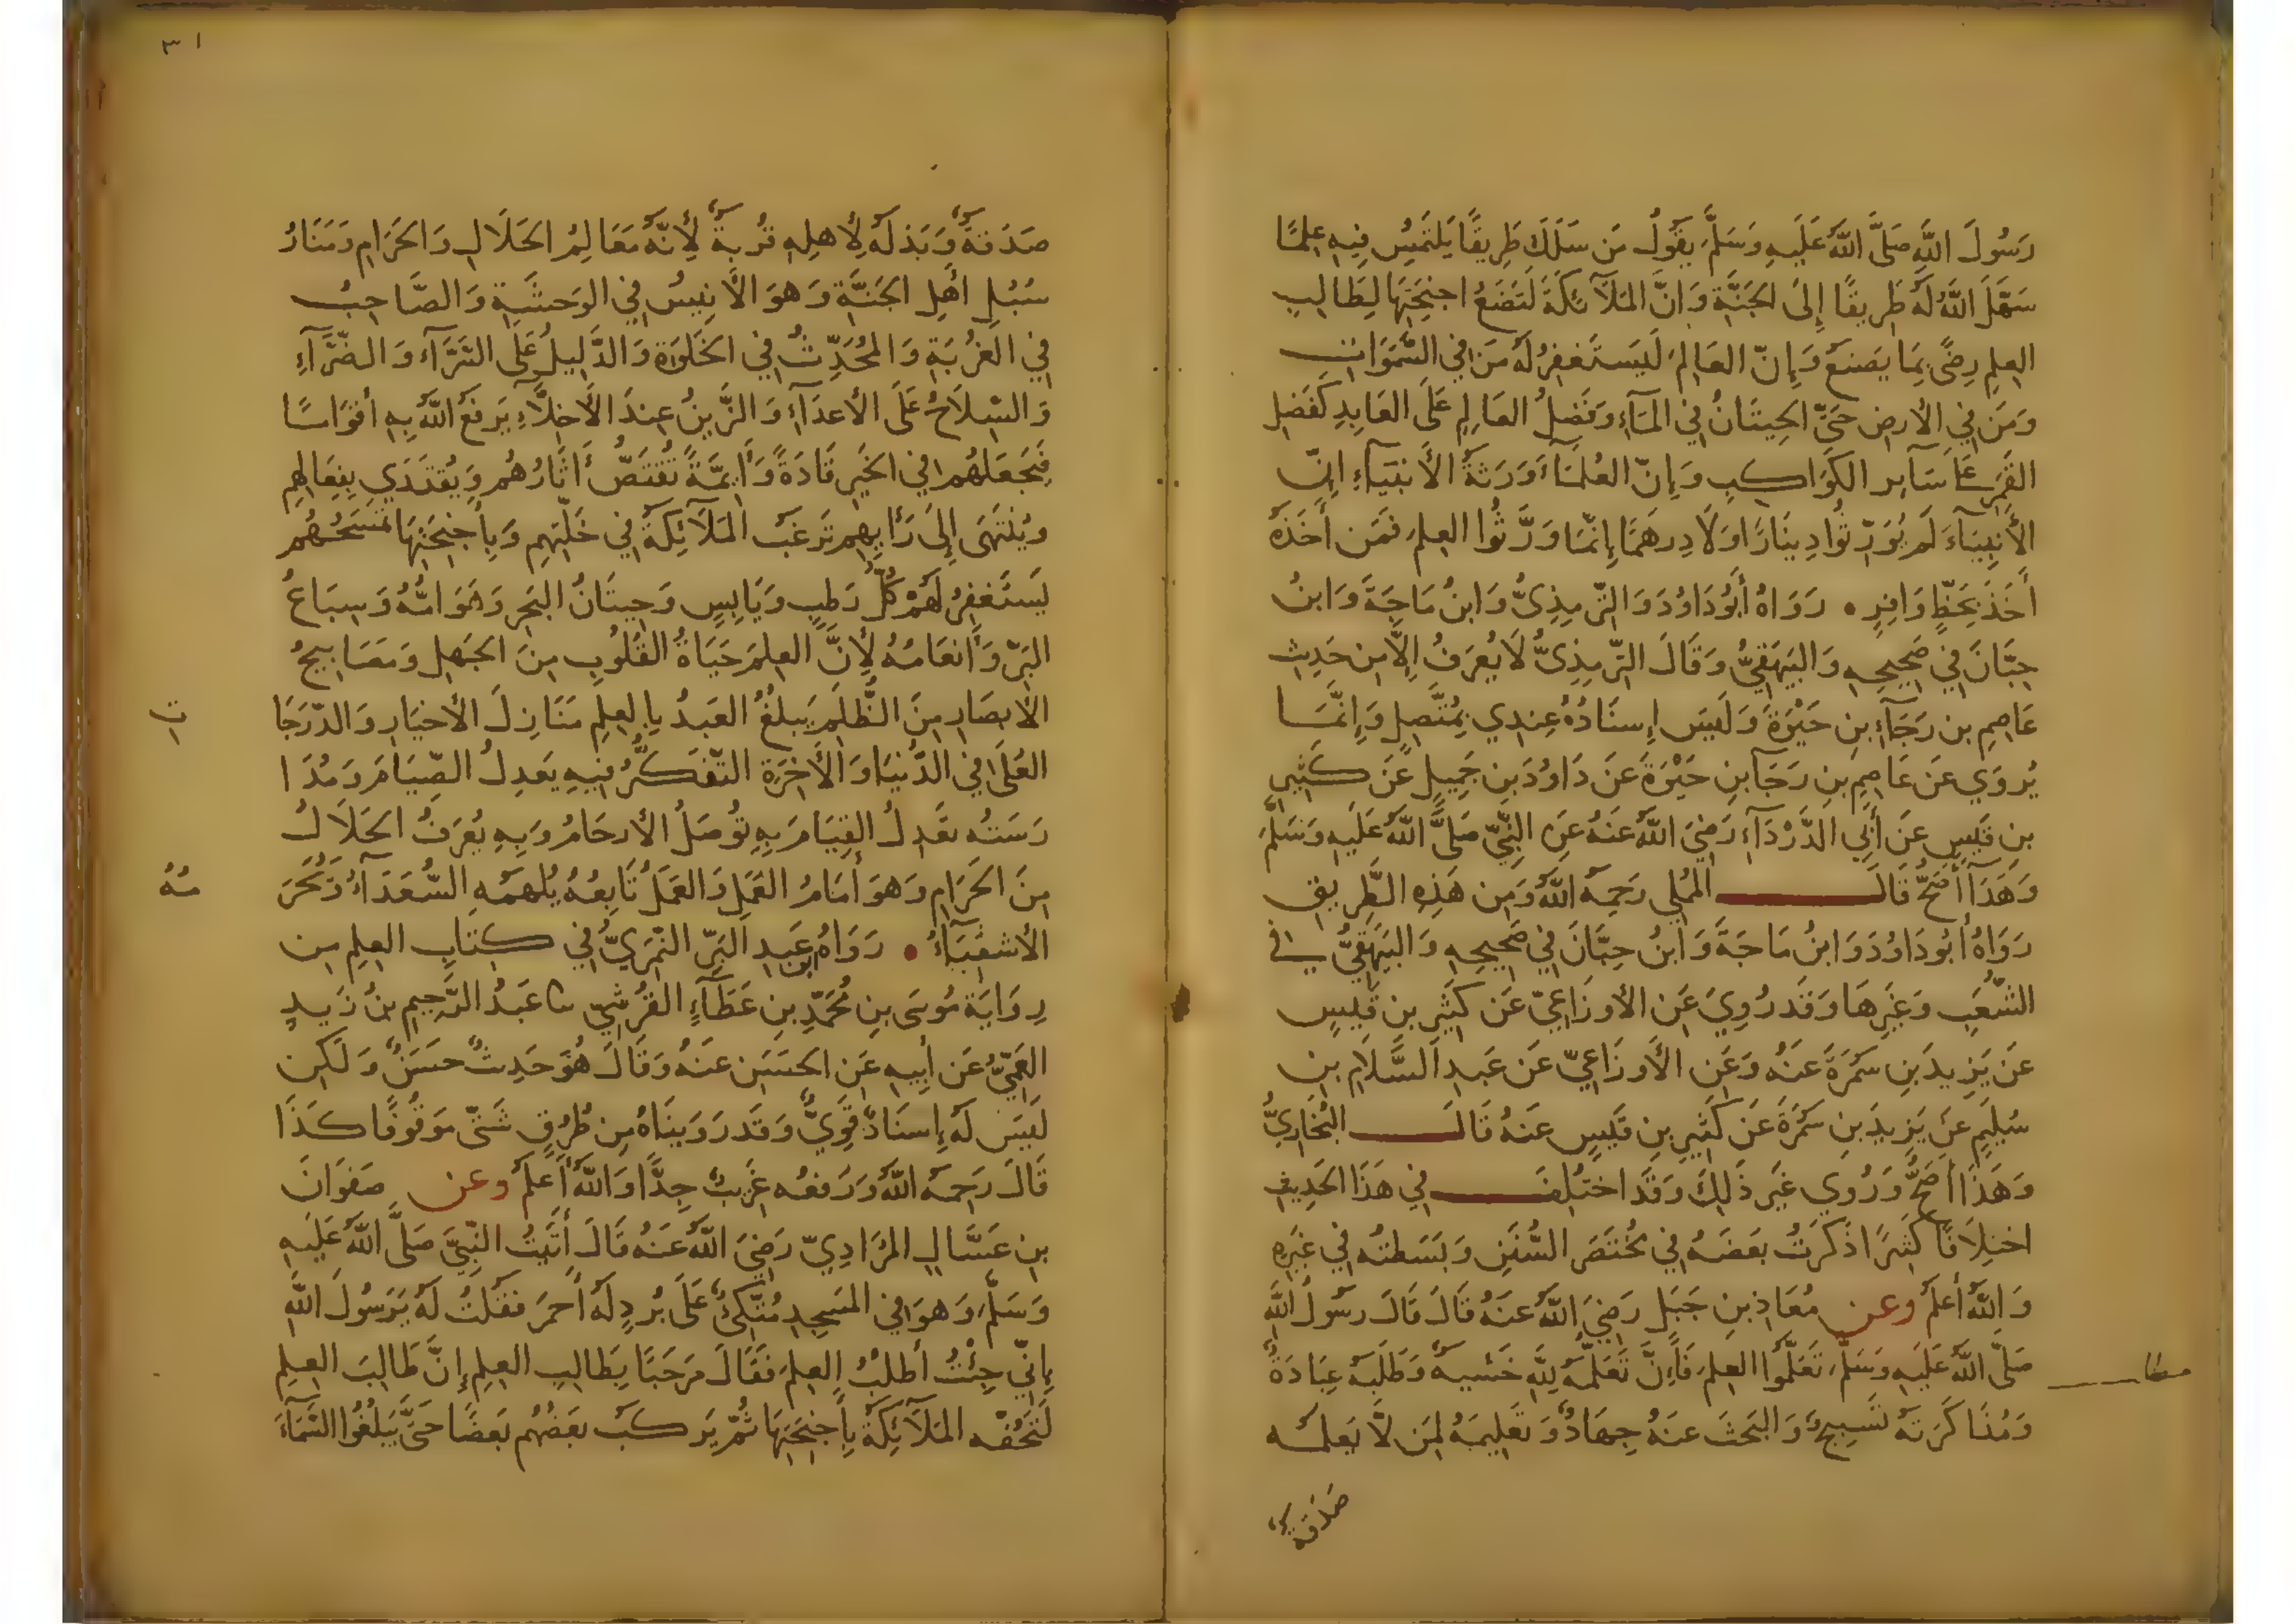 رَسُولَ اللَّهِ صَلَّى اللَّهُ عَلَيهِ وَسَلَّمَ يَقُولُ مَن سَلَكَ طَرِيقًا يَلتَمِسُ فِيهِ عِلمًا
سَهَّلَ اللَّهُ لَهُ طَرِيقًا إِلَى الجَنَّةِ وَانَّ المَلَآئِكَةَ لَتَضَعُ اجنِحَتَهَا لِطَالِبِ
العِلمِ رِضًى بِمَا يَصنَعُ وَإِنَّ العَالِمَ لَيَستَغفِرُ لَهُ مَن فِي السَّمَوَاتِ
وَمَن فِي الأَرضِ حَتَّى الحِيتَانُ فِي المَآءِ وَفَضلُ العَالِمِ عَلَى العَابِدِ كَفَضلِ
القَمَرِ عَلَى سَآيِرِ الكَوَاكِبِ وَإِنَّ العُلَمَآءَ وَرَثَةُ الأَنبِيَآءِ إِنَّ
الأَنبِيَآءَ لَم يُوَرِّثُوا دِينَارًا وَلَا دِرهَمًا إِنَّمَا وَرَّثُوا العِلمَ فَمَن أَخَذَهُ
أَخَذَ بِحَظٍّ وَافِرٍ • رَوَاهُ أَبُو دَاوُدَ وَالتِّرمِذِيُّ وَابنُ مَاجَةَ وَابنُ
حِبَّانَ فِي صَحِيحِهِ وَالبَيهَقِيُّ وَقَالَ التِّرمِذِيُّ لَا يُعرَفُ إِلَّا مِن حَدِيثِ
عَاصِمِ بنِ رَجَآءِ بنِ حَيْوَةَ وَلَيسَ إِسنَادُهُ عِندِي بِمُتَّصِلٍ وَإِنَّمَا
يُروَي عَن عَاصِمِ بنِ رَجَآ بنِ حَيْوَةَ عَن دَاوُدَ بنِ جَمِيلٍ عَن كَثِيرِ
بنِ قَيسٍ عَن أَبِي الدَّرْدَآءِ رَضِيَ اللَّهُ عَنهُ عَنِ النَّبِيِّ صَلَّى اللَّهُ عَلَيهِ وَسَلَّمَ
وَهَذَا أَصَحُّ قَالَ المُملِي رَحِمَهُ اللَّهُ وَمِن هَذِهِ الطَّرِيقِ
رَوَاهُ أَبُو دَاوُدَ وَابنُ مَاجَةَ وَابنُ حِبَّانَ فِي صَحِيحِهِ وَالبَيهَقِيُّ فِي
الشُّعَبِ وَغَيرِهَا وَقَد رُوِيَ عَنِ الأَوزَاعِيِّ عَن كَثِيرِ بنِ قَيسٍ
عَن يَزِيدَ بنِ سَمُرَةَ عَنهُ وَعَنِ الأَوزَاعِيِّ عَن عَبدِ السَّلَامِ بنِ
سُلَيمٍ عَن يَزِيدَ بنِ سَمُرَةَ عَن كَثِيرِ بنِ قَيسٍ عَنهُ قَالَ البُخَارِيُّ
وَهَذَا أَصَحُّ وَرُوِي غَيرَ ذَلِكَ وَقَد اختُلِفَ فِي هَذَا الحَدِيثِ
اختِلَافًا كَثِيرًا ذَكَرتُ بَعضَهُ فِي مُختَصَرِ السُّنَنِ وَبَسَطتُهُ فِي غَيرِهِ
وَاللَّهُ أَعلَمُ وعن مُعَاذِ بنِ جَبَلٍ رَضِيَ اللَّهُ عَنهُ قَالَ قَالَ رَسُولُ اللَّهِ
صَلَّى اللَّهُ عَلَيهِ وَسَلَّمَ تَعَلَّمُوا العِلمَ فَإِنَّ تَعَلُّمَهُ لِلَّهِ خَشيَةٌ وَطَلَبَهُ عِبَادَةٌ
وَمُذَاكَرَتَهُ تَسبِيحٌ وَالبَحثَ عَنهُ جِهَادٌ وَتَعلِيمَهُ لِمَن لَّا يَعلَمُه
صَدَقَةٌ
٣١
صَدَقَةٌ وَبَذلَهُ لِأَهلِهِ قُربَةٌ لِأَنَّهُ مَعَالِمُ الحَلَالِ وَالحَرَامِ وَمَنَارُ
سُبُلِ أَهلِ الجَنَّةِ وَهوَ الأَنِيسُ فِي الوَحشَةِ وَالصَّاحِبُ
فِي الغُربَةِ وَالمُحَدِّثُ فِي الخَلوَةِ وَالدَّلِيلُ عَلَى السَّرَّآءِ وَالضَّرَّآءِ
وَالسِّلَاحُ عَلَى الأَعدَآءِ وَالزَّينُ عِندَ الأَخِلَّآءِ يَرفَعُ اللَّهُ بِهِ أَقوَامًا
فَيَجعَلُهُم فِي الخَيرِ قَادَةً وَأَيِمَّةً تُقتَصُّ أَثَارُهُم وَيُقتَدَي بِفِعَالِهِم
وَيُنتَهَى إِلَى رَأيِهِم تَرغَبُ المَلَآئِكَةُ فِي خَلَّتِهِم وَبِأَجنِحَتِهَا تَمسَحُهُم
يَستَغفِرُ لَهُمْ كُلُّ رَطبٍ وَيَابِسٍ وَحِيتَانُ البَحرِ وَهَوَامُّهُ وَسِبَاعُ
البَرِّ وَأَنعَامُهُ لِأَنَّ العِلمَ حَيَاةُ القُلُوبِ مِنَ الجَهلِ وَمَصَابِيحُ
الأَبصَارِ مِنَ الظُّلَمِ يَبلُغُ العَبدُ بِالعِلمِ مَنَازِلَ الأَخيَارِ وَالدَّرَجَا
تِ
العُلَى فِي الدُّنيَا وَالأَخِرَةِ التَّفَكُّرُ فِيهِ يَعدِلُ الصِّيَامَ وَمُدَا
رَسَتُه تَعدِلُ القِيَامَ بِهِ تُوصَلُ الأَرحَامُ وَبِهِ يُعرَفُ الحَلَالُ
مِنَ الحَرَامِ وَهوَ أَمَامُ العَمَلِ وَالعَمَلُ تَابِعُهُ يُلهَمُهُ السُّعَدَآءُ وَيُحرَ
مُهُ
الأَشقِيَآءُ • رَوَاهُ ابن عَبدِ البَرِّ النَّمَرِيُّ فِي كِتَابِ العِلمِ مِن
رِوَايَةِ مُوسَى بنِ مُحَمَّدِ بنِ عَطَآءٍ القُرَشِيِّ ثنا عَبدُ الرَّحِيمِ بنُ زَيدٍ
العَمِّيُّ عَن أَبِيهِ عَنِ الحَسَنِ عَنهُ وَقَالَ هُوَ حَدِيثٌ حَسَنٌ وَلَكِن
لَيسَ لَهُ إِسنَادٌ قَوِيٌّ وَقَد رَوَينَاهُ مِن طُرُقٍ شَتَّى مَوقُوفًا كَذَا
قَالَ رَحِمَهُ اللَّهُ وَرَفعُه غَرِيبٌ جِدًّا وَاللَّهُ أَعلَمُ وعن صَفوَانَ
بنِ عَسَّالٍ المُرَادِيِّ رَضِيَ اللَّهُ عَنهُ قَالَ أَتَيتُ النَّبِيَّ صَلَّى اللَّهُ عَلَيهِ
وَسَلَّمَ وَهوَ فِي المَسجِدِ مُتَّكِئٌ عَلَى بُردٍ لَهُ أَحمَرَ فَقُلتُ لَهُ يَرَسُولَ اللَّهِ
إِنِّي جِئتُ أَطلُبُ العِلمَ فَقَالَ مَرحَبًا بِطَالِبِ العِلمِ إِنَّ طَالِبَ العِلمِ
لَتَحُفُّه المَلَآئِكَةُ بِأَجنِحَتِهَا ثُمَّ يَركَبُ بَعضُهُم بَعضًا حَتَّى يَبلُغُوا السَّمَآءَ